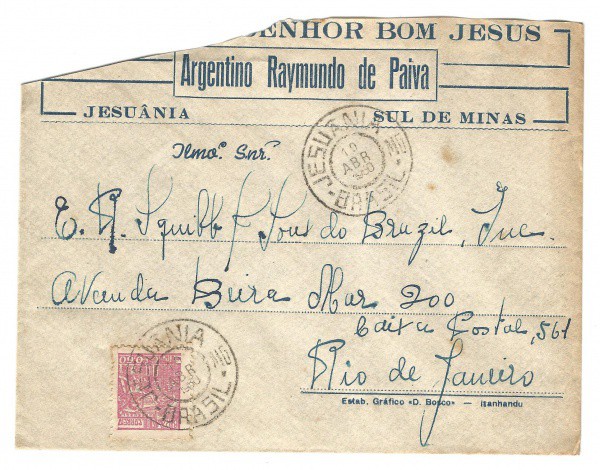 SENHOR BOM JESUS
Argentino Raymundo de Paiva
JESUÂNIA SUL DE MINAS
Ilmo. Snr.
JESUANIA MG
19
ABR
1950
BRASIL
E. R. Squibb & Sons do Brazil, Inc.
Avenida Beira Mar 200
Caixa Postal, 561
Rio de Janeiro
JESUANIA MG
ABR
1950
BRASIL
Estab. Gráfico «D. Bosco» — Itanhandu